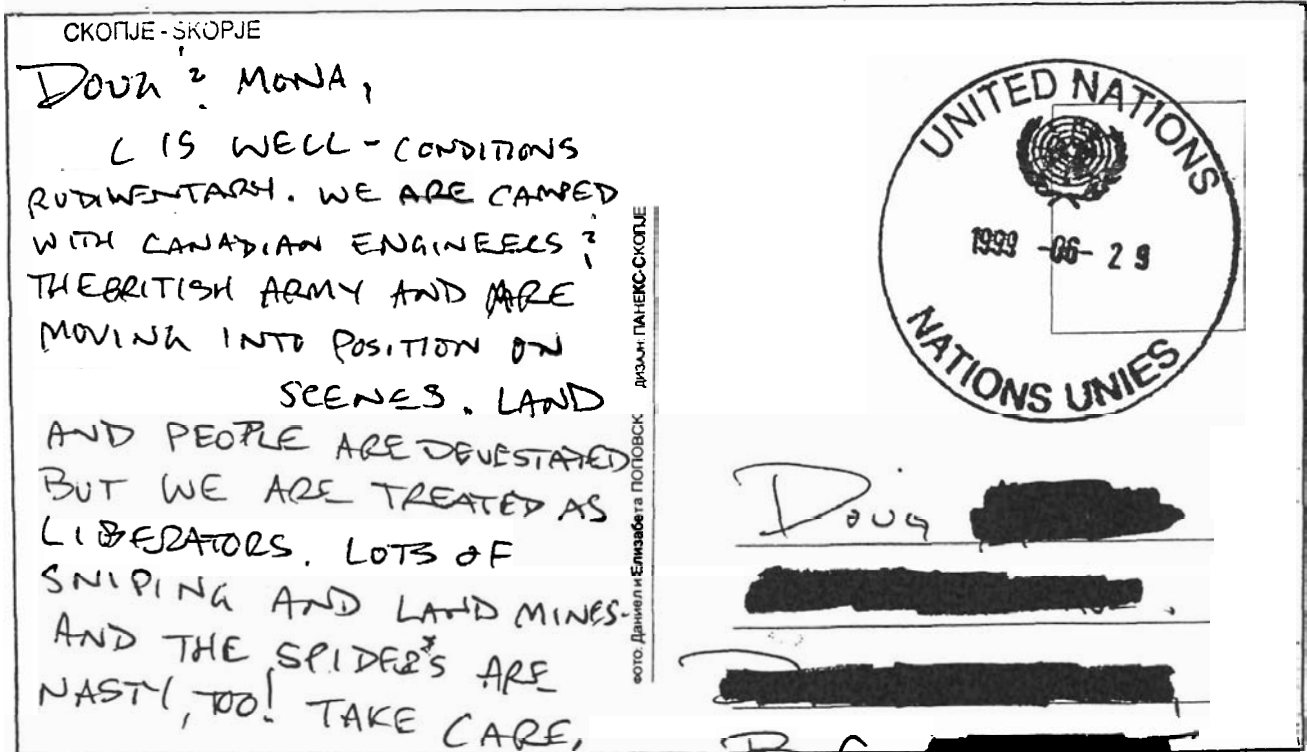 СКОПЈЕ - SKOPJE
DOUG & MONA,
L IS WELL - CONDITIONS
RUDIMENTARY. WE ARE CAMPED
WITH CANADIAN ENGINEERS &
THE BRITISH ARMY AND ARE
MOVING INTO POSITION ON
SCENES. LAND
AND PEOPLE ARE DEVESTATED
BUT WE ARE TREATED AS
LIBERATORS. LOTS OF
SNIPING AND LAND MINES-
AND THE SPIDERS ARE
NASTY, TOO! TAKE CARE,
ФОТО: Даниел и Елизабета ПОПОВСК ДИЗАЈН: ПАНЕКС-СКОПЈЕ
UNITED NATIONS
1999 -06- 29
NATIONS UNIES
Doug